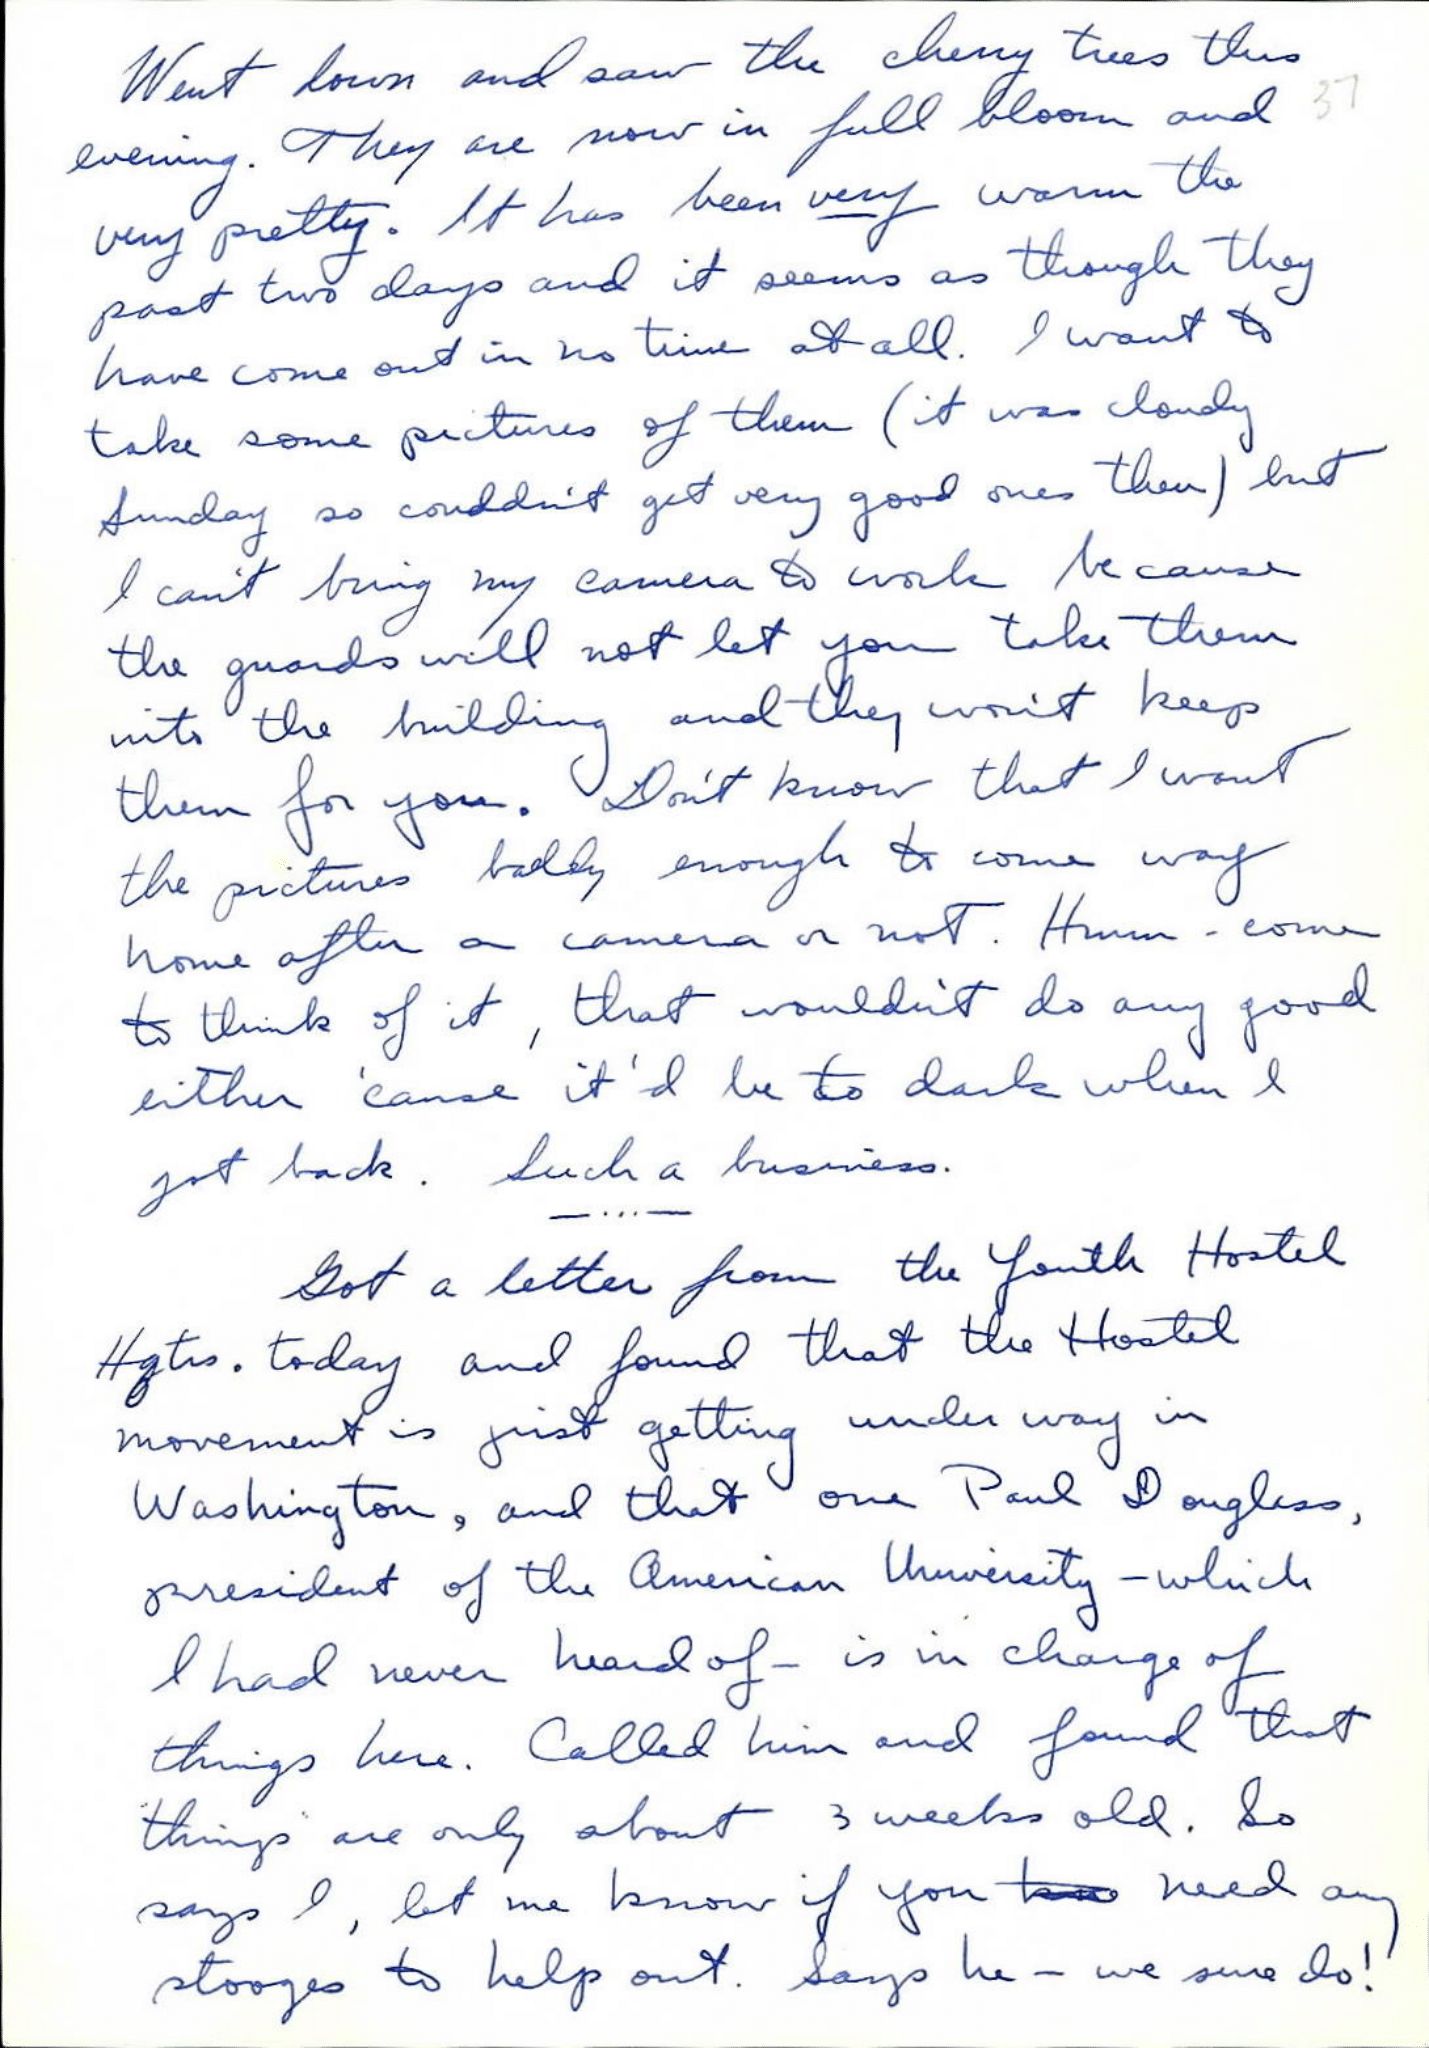 Went down and saw the cherry trees this
37
evening. They are now in full bloom and
very pretty. It has been very warm the
past two days and it seems as though they
have come out in no time at all. I want to
take some pictures of them (it was cloudy
Sunday so couldn't get very good ones then) but
I can't bring my camera to work because
the guards will not let you take them
into the building and they won't keep
them for you. Don't know that I want
the pictures badly enough to come way
home after a camera or not. Hmm - come
to think of it, that wouldn't do any good
either 'cause it'd be to dark when I
got back. Such a business.
— ... —
Got a letter from the Youth Hostel
Hqtrs. today and found that the Hostel
movement is just getting under way in
Washington, and that one Paul Douglass,
president of the American University - which
I had never heard of - is in charge of
things here. Called him and found that
"things" are only about 3 weeks old. So
says I, let me know if you need any
stooges to help out. Says he - we sure do!